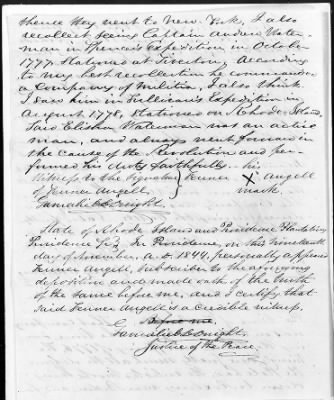 thence they went to New York, I also
recollect seeing Captain Andrew Water-
man in Spencer's Expedition in October
1777. Stationed at Tiverton, According
to my best recollection he commanded
a Company of Militia, I also think
I saw him in Sullivan's Expedition in
August 1778, Stationed on Rhode Island,
Said Elisha Waterman was an active
man, and always went forward in
the cause of the Revolution and per-
formed his duty faithfully. his
Witness to the Signature } Fenner X Angell
of Fenner Angell } mark.
Gamaliel L Dwight.
State of Rhode Island and Providence Plantations
Providence In Providence, on this Nineteenth
day of November, A.D. 1844, personally appeared
Fenner Angell, Subscriber to the foregoing
deposition and made oath of the truth
of the same before me, and I certify that
said Fenner Angell is a credible witness,
Before me,
Gamaliel L Dwight.
Justice of the Peace.